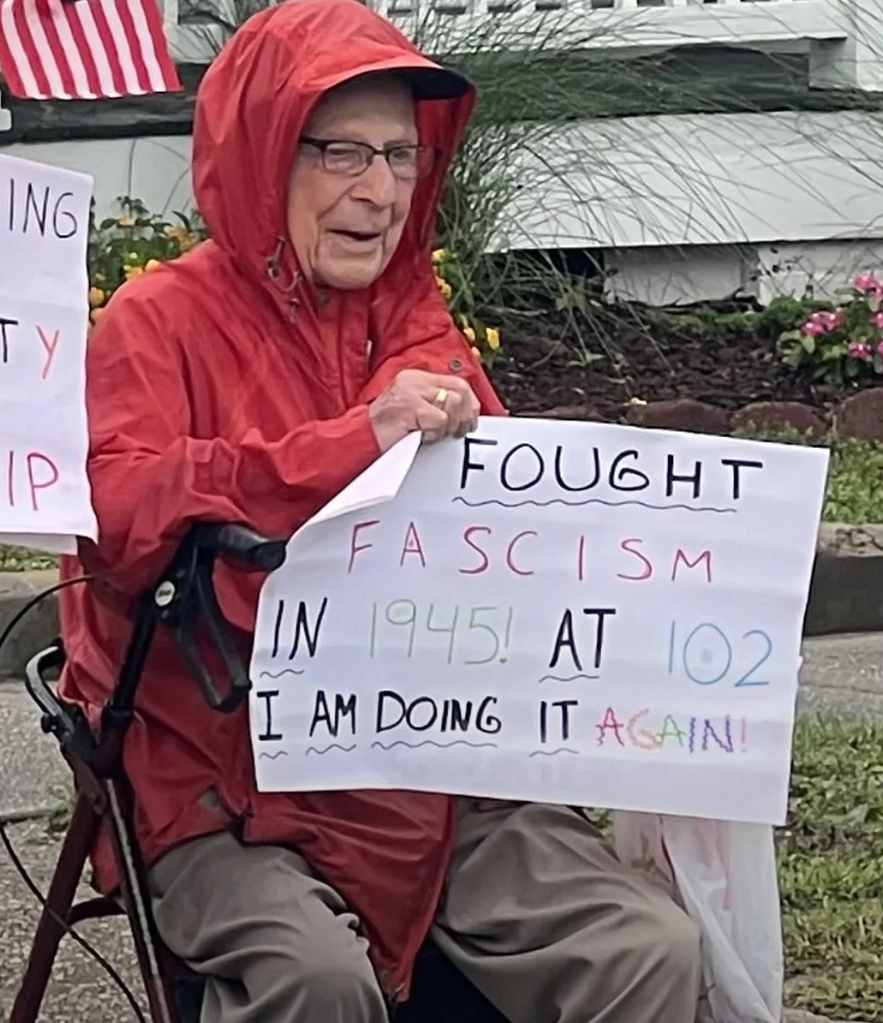 ING
TY
IP
FOUGHT
FASCISM
IN 1945! AT 102
I AM DOING IT AGAIN!